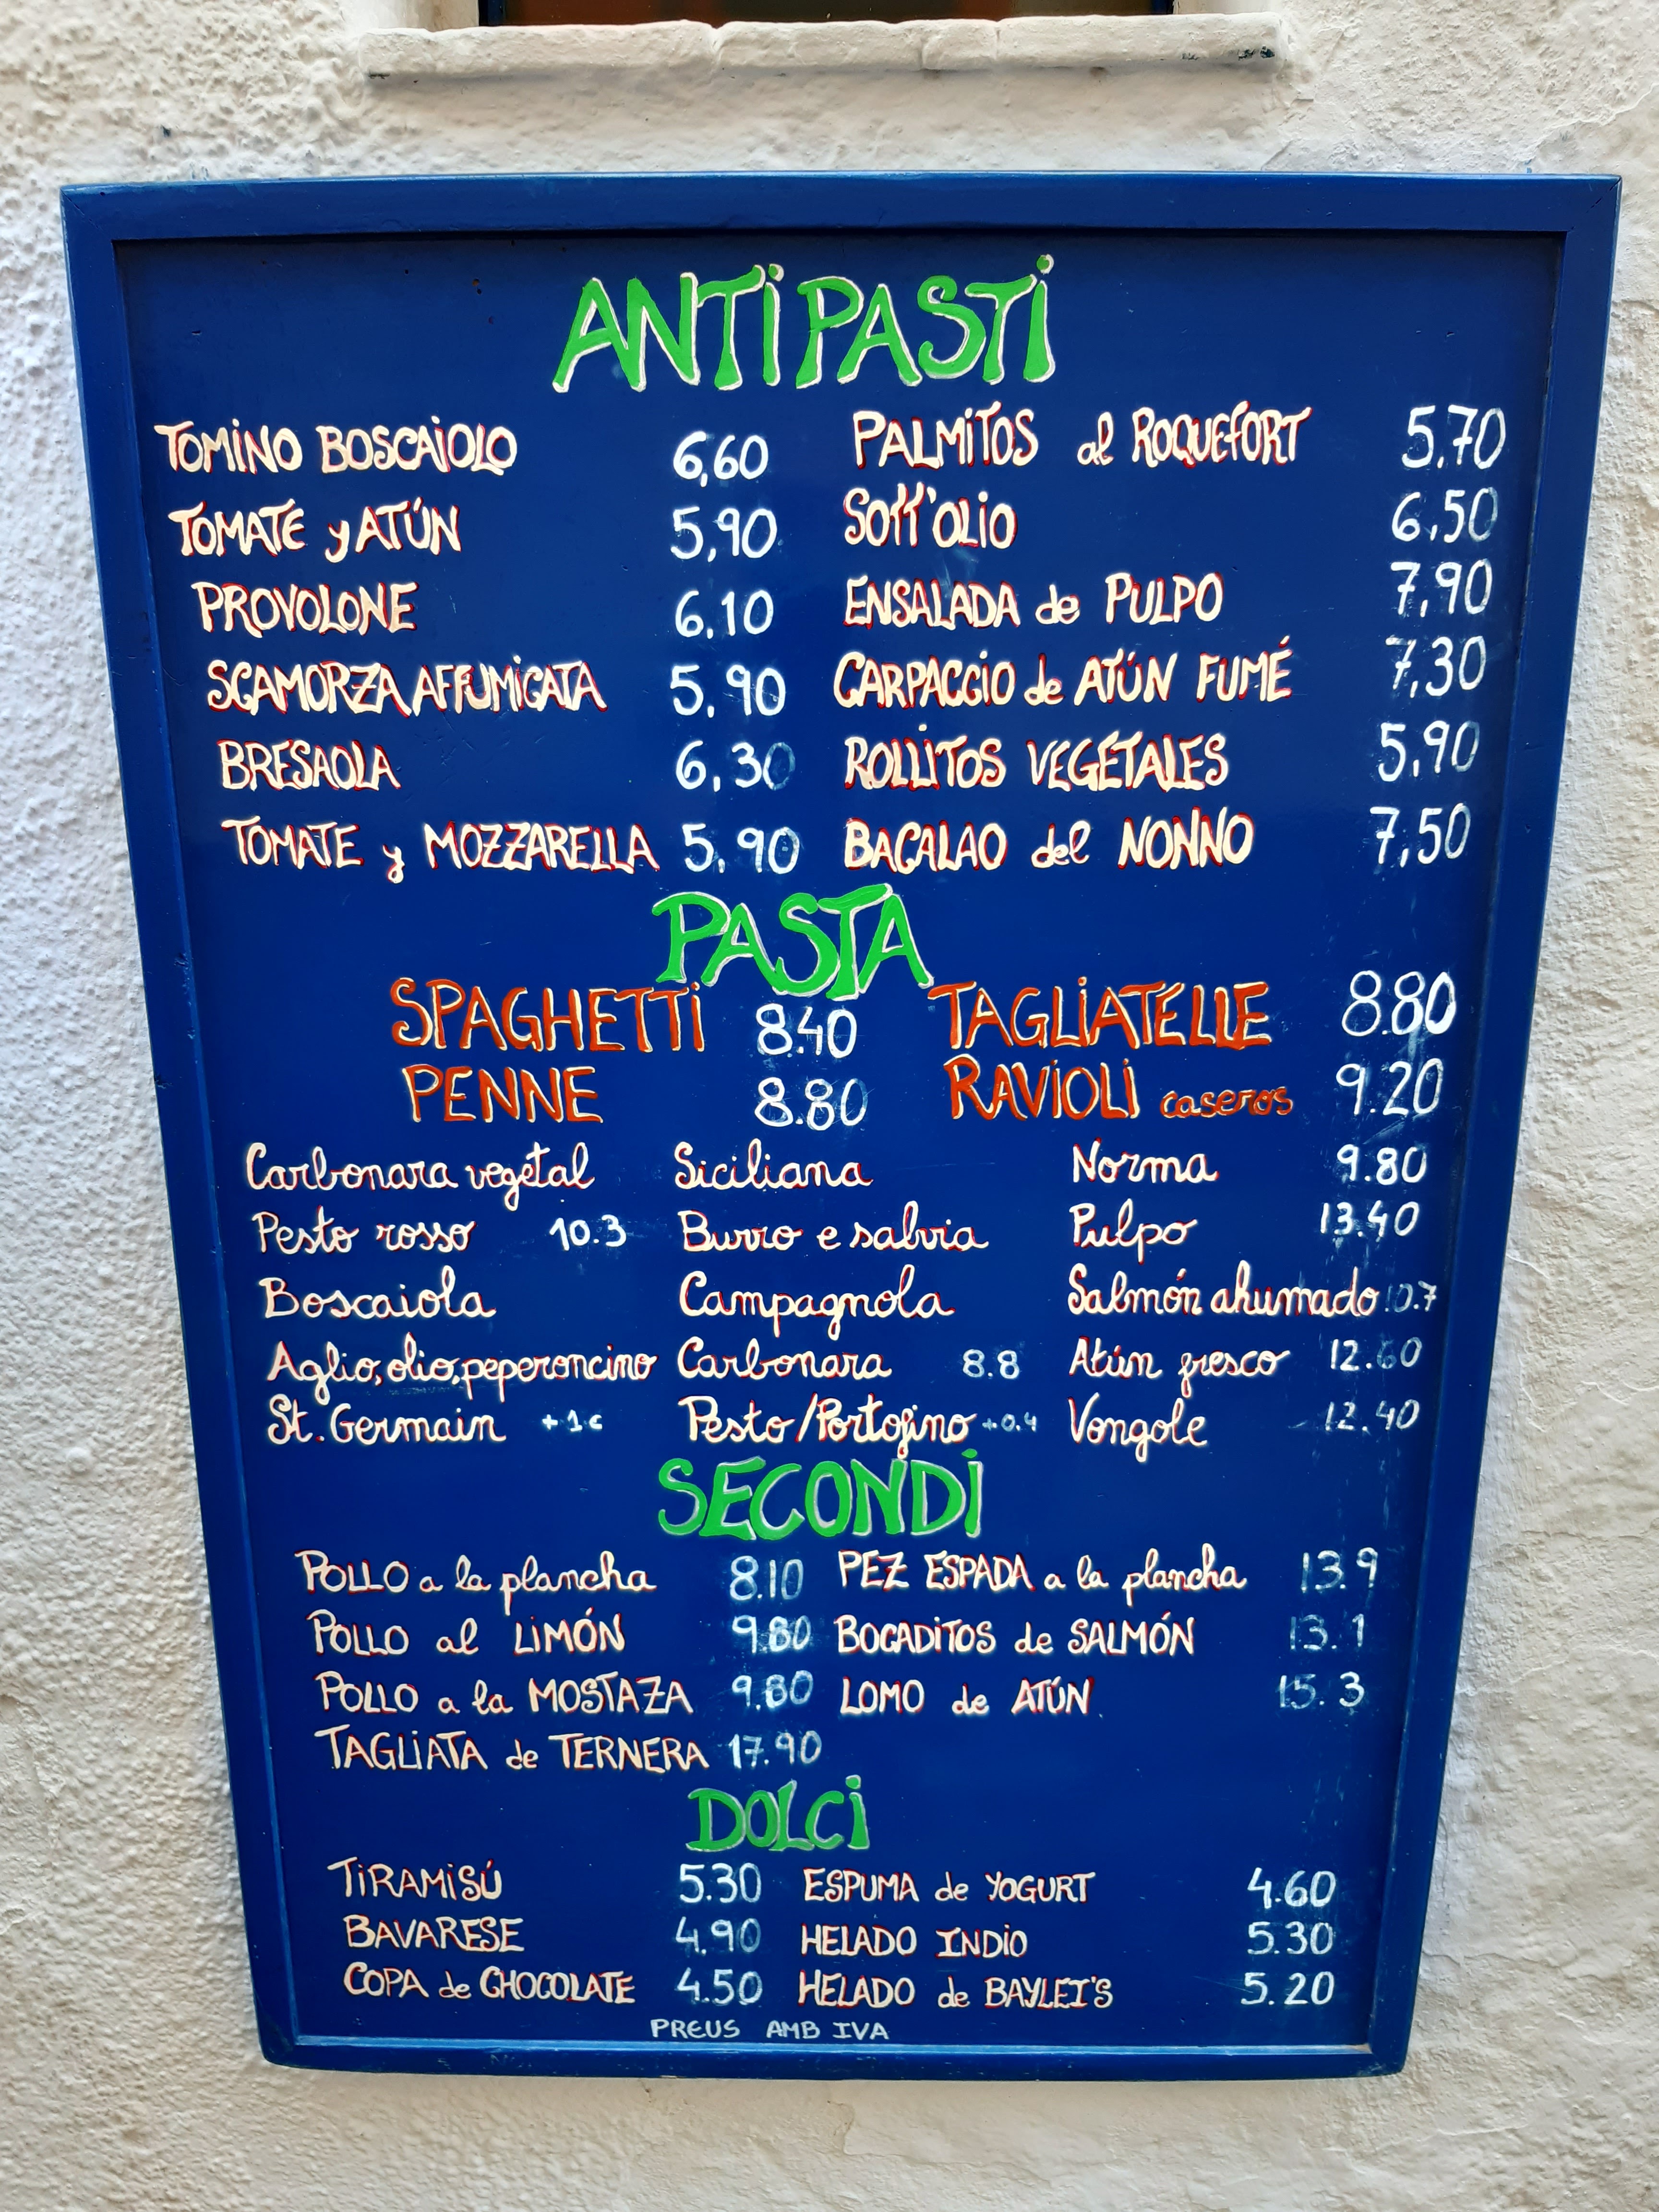 ANTIPASTI
TOMINO BOSCAIOLO 6,60 PALMITOS al ROQUEFORT 5,70
TOMATE y ATÚN 5,90 SOTT'OLIO 6,50
PROVOLONE 6,10 ENSALADA de PULPO 7,90
SCAMORZA AFFUMICATA 5,90 CARPACCIO de ATÚN FUMÉ 7,30
BRESAOLA 6,30 ROLLITOS VEGETALES 5,90
TOMATE y MOZZARELLA 5,90 BACALAO del NONNO 7,50
PASTA
SPAGHETTI 8.40 TAGLIATELLE 8.80
PENNE 8.80 RAVIOLI caseros 9.20
Carbonara vegetal Siciliana Norma 9.80
Pesto rosso 10.3 Burro e salvia Pulpo 13.40
Boscaiola Campagnola Salmón ahumado 10.7
Aglio, olio, peperoncino Carbonara 8.8 Atún fresco 12.60
St. Germain +1€ Pesto/Portofino +0.4 Vongole 12.40
SECONDI
POLLO a la plancha 8.10 PEZ ESPADA a la plancha 13.9
POLLO al LIMÓN 9.80 BOCADITOS de SALMÓN 13.1
POLLO a la MOSTAZA 9.80 LOMO de ATÚN 15.3
TAGLIATA de TERNERA 17.90
DOLCI
TIRAMISÚ 5.30 ESPUMA de YOGURT 4.60
BAVARESE 4.90 HELADO INDIO 5.30
COPA de CHOCOLATE 4.50 HELADO de BAYLEI'S 5.20
PREUS AMB IVA